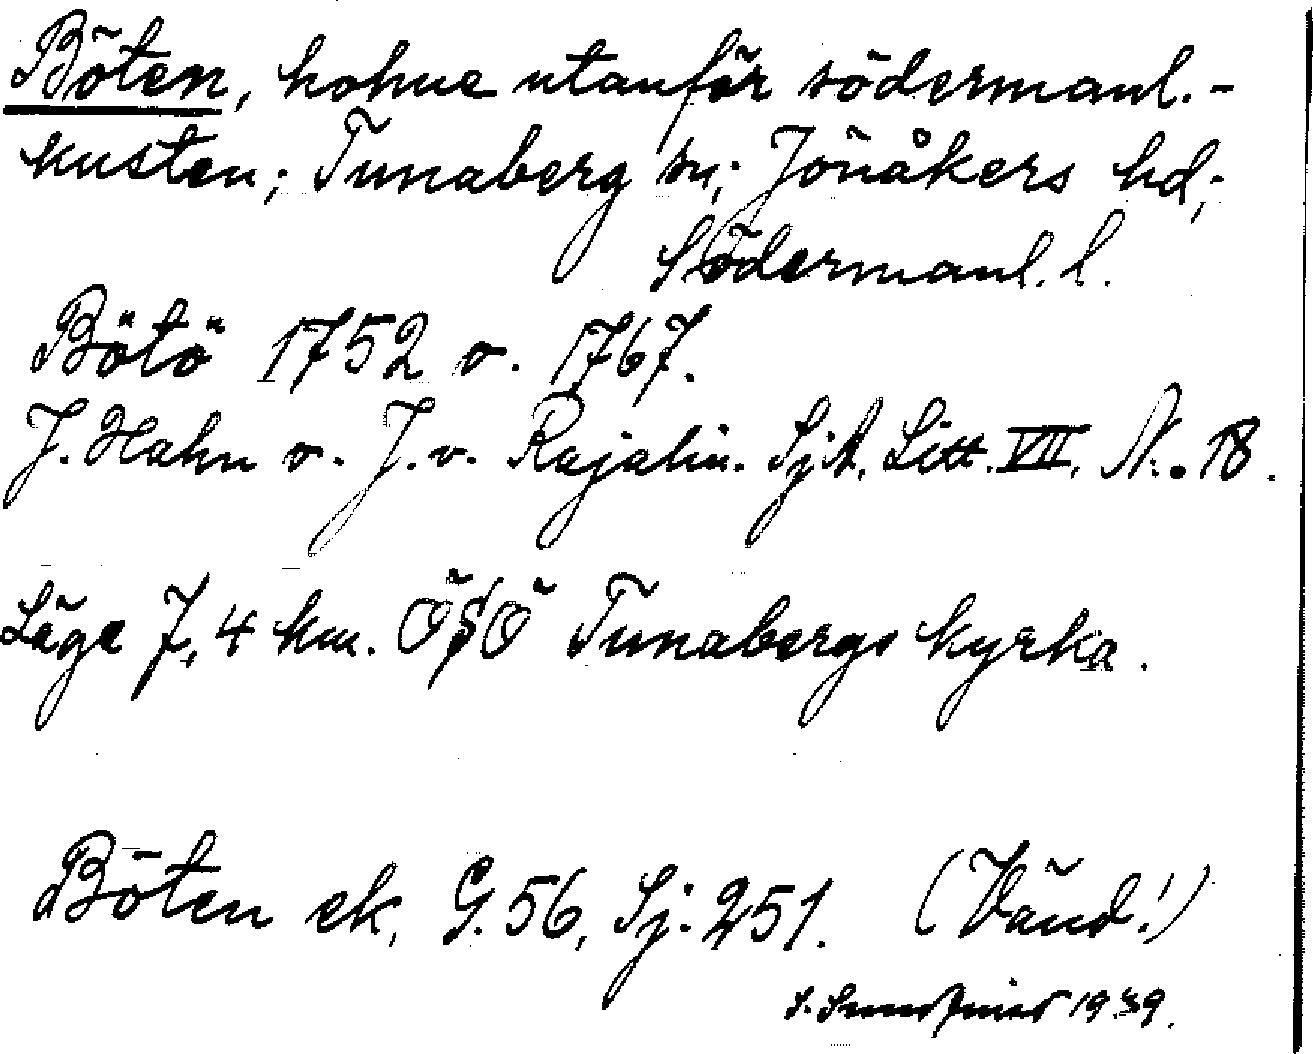 Böten, holme utanför södermanl.-
kusten; Tunaberg sn; Jönåkers hd;
Södermanl. l.
Bötö 1752 o. 1767.
J. Hahn o. J. v. Rajalin. SjA, Litt. VII, N:o 18.
Läge 7,4 km. ÖSÖ Tunabergs kyrka.
Böten ek, G. 56, Sj: 251. (Vänd!)
1939.